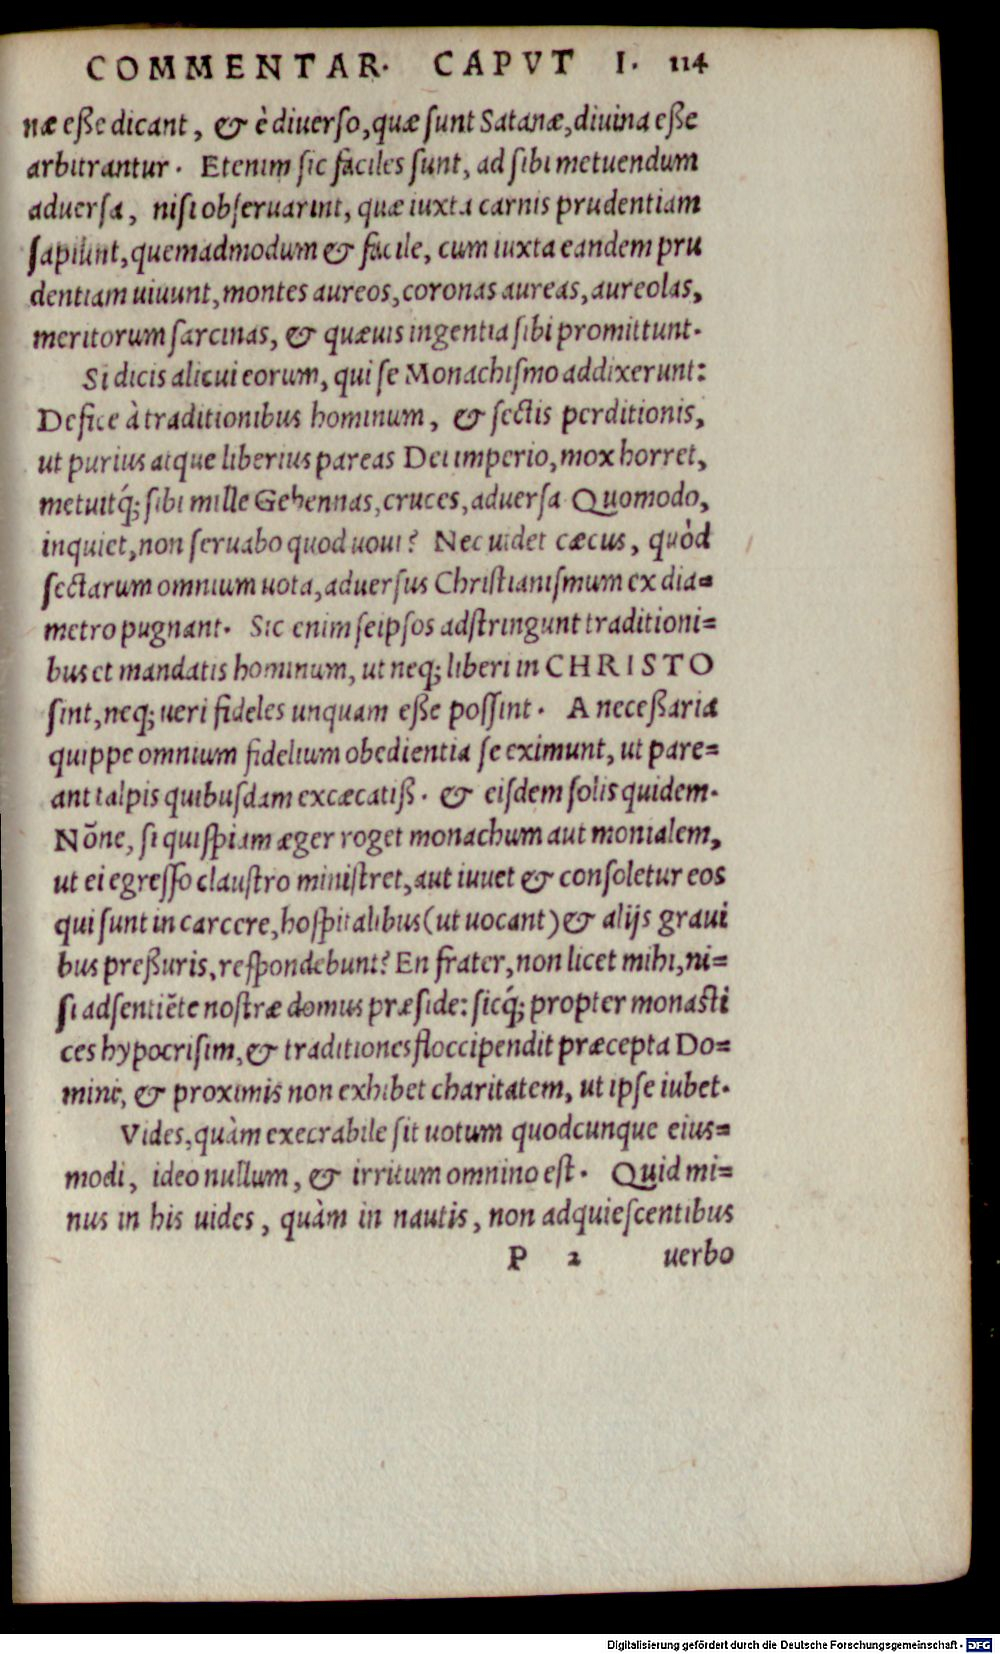 COMMENTAR. CAPVT I. 114
næ eße dicant, & è diuerſo, quæ ſunt Satanæ, diuina eße
arbitrantur. Etenim ſic faciles ſunt, ad ſibi metuendum
aduerſa, niſi obſeruarint, quæ iuxta carnis prudentiam
ſapiunt, quemadmodum & facile, cum iuxta eandem pru
dentiam uiuunt, montes aureos, coronas aureas, aureolas,
meritorum ſarcinas, & quæuis ingentia ſibi promittunt.
Si dicis alicui eorum, qui ſe Monachiſmo addixerunt:
Defice à traditionibus hominum, & ſectis perditionis,
ut purius atque liberius pareas Dei imperio, mox horret,
metuitq́; ſibi mille Gehennas, cruces, aduerſa. Quomodo,
inquiet, non ſeruabo quod uoui? Nec uidet cæcus, quòd
ſectarum omnium uota, aduerſus Chriſtianiſmum ex dia=
metro pugnant. Sic enim ſeipſos adſtringunt traditioni=
bus et mandatis hominum, ut neq; liberi in CHRISTO
ſint, neq; ueri fideles unquam eße poſſint. A neceßaria
quippe omnium fidelium obedientia ſe eximunt, ut pare=
ant talpis quibuſdam excæcatiß. & eiſdem ſolis quidem.
Nõne, ſi quiſpiam æger roget monachum aut monialem,
ut ei egreſſo clauſtro miniſtret, aut iuuet & conſoletur eos
qui ſunt in carcere, hoſpitalibus (ut uocant) & alijs graui
bus preßuris, reſpondebunt? En frater, non licet mihi, ni=
ſi adſentiẽte noſtræ domus præſide: ſicq́; propter monaſti
ces hypocriſim, & traditiones floccipendit præcepta Do=
mini, & proximis non exhibet charitatem, ut ipſe iubet.
Vides, quàm execrabile ſit uotum quodcunque eius=
modi, ideo nullum, & irritum omnino eſt. Quid mi=
nus in his uides, quàm in nautis, non adquieſcentibus
P 2 uerbo
Digitalisierung gefördert durch die Deutsche Forschungsgemeinschaft - DFG